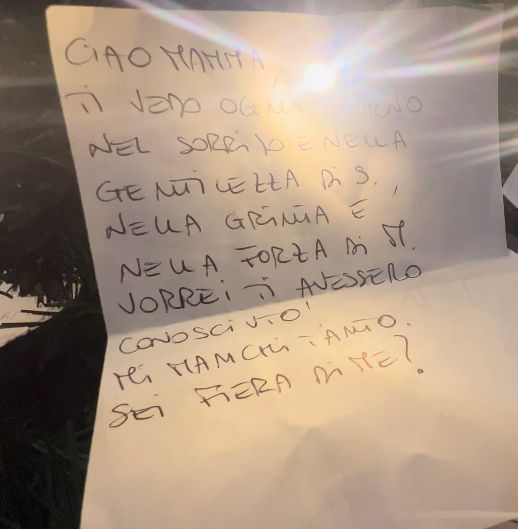 CIAO MAMMA,
TI VEDO OGNI GIORNO
NEL SORRISO E NELLA
GENTILEZZA DI S.,
NELLA GRINTA E
NELLA FORZA DI M.
VORREI TI AVESSERO
CONOSCIUTO!
MI MANCHI TANTO.
SEI FIERA DI ME?